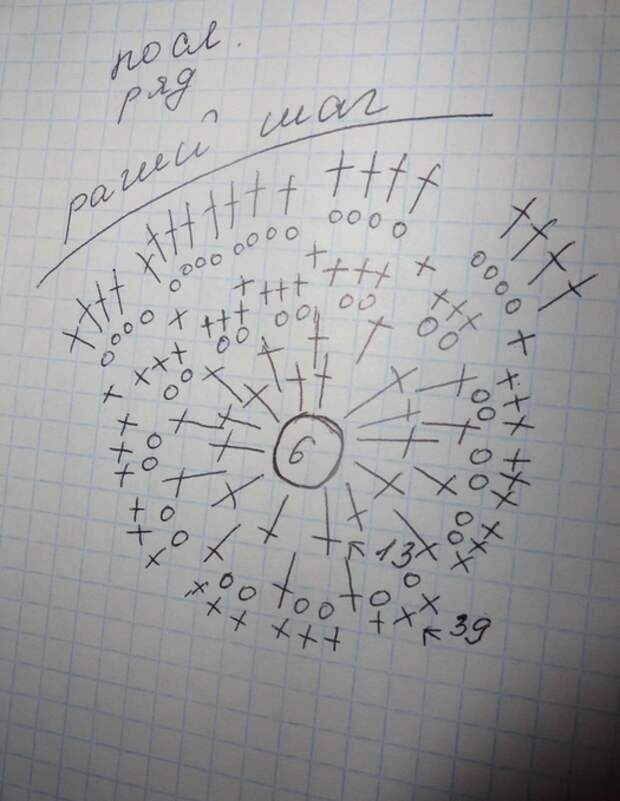 посл.
ряд
рачий шаг
6
13
39